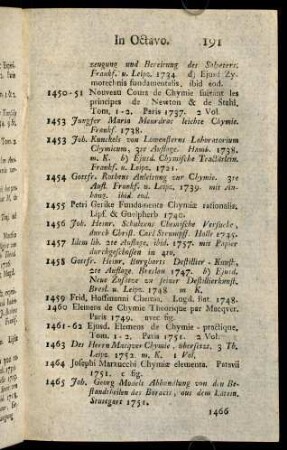 In Octavo. 191
zeugung und Bereitung des Salpeters.
Frankf. u. Leipz. 1734. d) Ejusd. Zy-
motechnia fundamentalis, ibid eod.
1450-51 Nouveau Cours de Chymie suivant les
principes de Newton & de Stahl,
Tom. 1-2. Paris 1737. 2 Vol
1452 Jungfer Maria Meurdrac leichte Chymie.
Frankf. 1738.
1453 Joh. Kunckels von Löwenstern Laboratorium
Chymicum, 3te Auflage. Hamb. 1738.
m. K. b) Ejusd. Chymische Tractätlein.
Frankf. u. Leipz. 1721.
1454 Gottfr. Rothens Anleitung zur Chymie. 3te
Aufl. Frankf. u. Leipz. 1739. mit An-
hang. ibid. eod.
1455 Petri Gerike Fundamenta Chymiæ rationalis,
Lipf. & Guelpherb 1740.
1456 Joh. Heinr. Schulzens Chymische Versuche,
durch Christ. Carl Strumpff. Halle 1745.
1457 Idem lib. 2te Auflage, ibid. 1757. mit Papier
durchgeschossen in 4to.
1458 Gottfr. Heinr. Burgharts Destillier-Kunst,
2te Auflage. Breslau 1747. b) Ejusd.
Neue Zusätze zu seiner Destillierkunst.
Bresl. u. Leipz. 1748. m K.
1459 Frid. Hoffmanni Chemia. Logd. Bat. 1748.
1460 Elemens de Chymie Theorique par Macquer.
Paris 1749. avec fig.
1461-62 Ejusd. Elemens de Chymie-practique,
Tom. 1-2. Paris 1751. 2 Vol.
1463 Des Herrn Macquer Chymie, übersetzt. 3 Th.
Leipz. 1752. m. K. 1 Vol,
1464 Josephi Martucchi Chymiæ elementa. Patavii
1751. c fig.
1465 Joh. Georg Models Abhandlung von den Be-
standtheilen des Boracis, aus dem Latein.
Stuttgart 1751.
1466